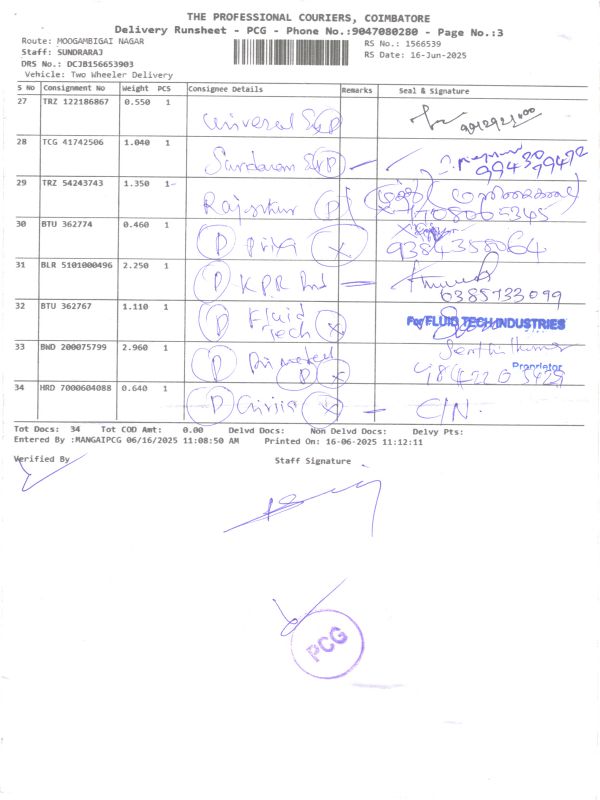 THE PROFESSIONAL COURIERS, COIMBATORE
Delivery Runsheet - PCG - Phone No.:9047080280 - Page No.:3
Route: MOOGAMBIGAI NAGAR RS No.: 1566539
Staff: SUNDRARAJ RS Date: 16-Jun-2025
DRS No.: DCJB156653903
Vehicle: Two Wheeler Delivery
S No Consignment No Weight PCS Consignee Details Remarks Seal & Signature
27 TRZ 122186867 0.550 1 Universal
28 TCG 41742506 1.040 1 Sundaram
29 TRZ 54243743 1.350 1 Rajeshkur D
30 BTU 362774 0.460 1 D Priya X 9384358064
31 BLR 5101000496 2.250 1 D KPR Ind 6385733099
32 BTU 362767 1.110 1 D Fluid Tech X For FLUID TECH INDUSTRIES
33 BWD 200075799 2.960 1 D D X Senthilkumar Proprietor
34 HRD 7000604088 0.640 1 D X C/N.
Tot Docs: 34 Tot COD Amt: 0.00 Delvd Docs: Non Delvd Docs: Delvy Pts:
Entered By :MANGAIPCG 06/16/2025 11:08:50 AM Printed On: 16-06-2025 11:12:11
Verified By Staff Signature
PCG